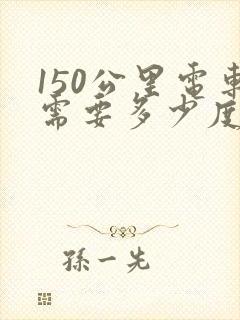 150公里電車
需要多少度
孫一先